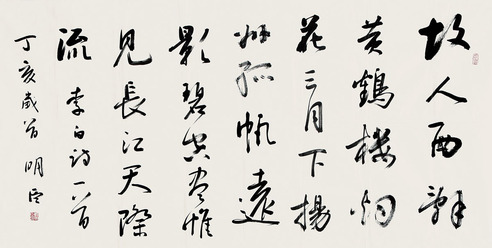 故人西辭
黃鶴樓烟
花三月下揚
州孤帆遠
影碧空盡惟
見長江天際
流 李白詩一首
丁亥歲首 明